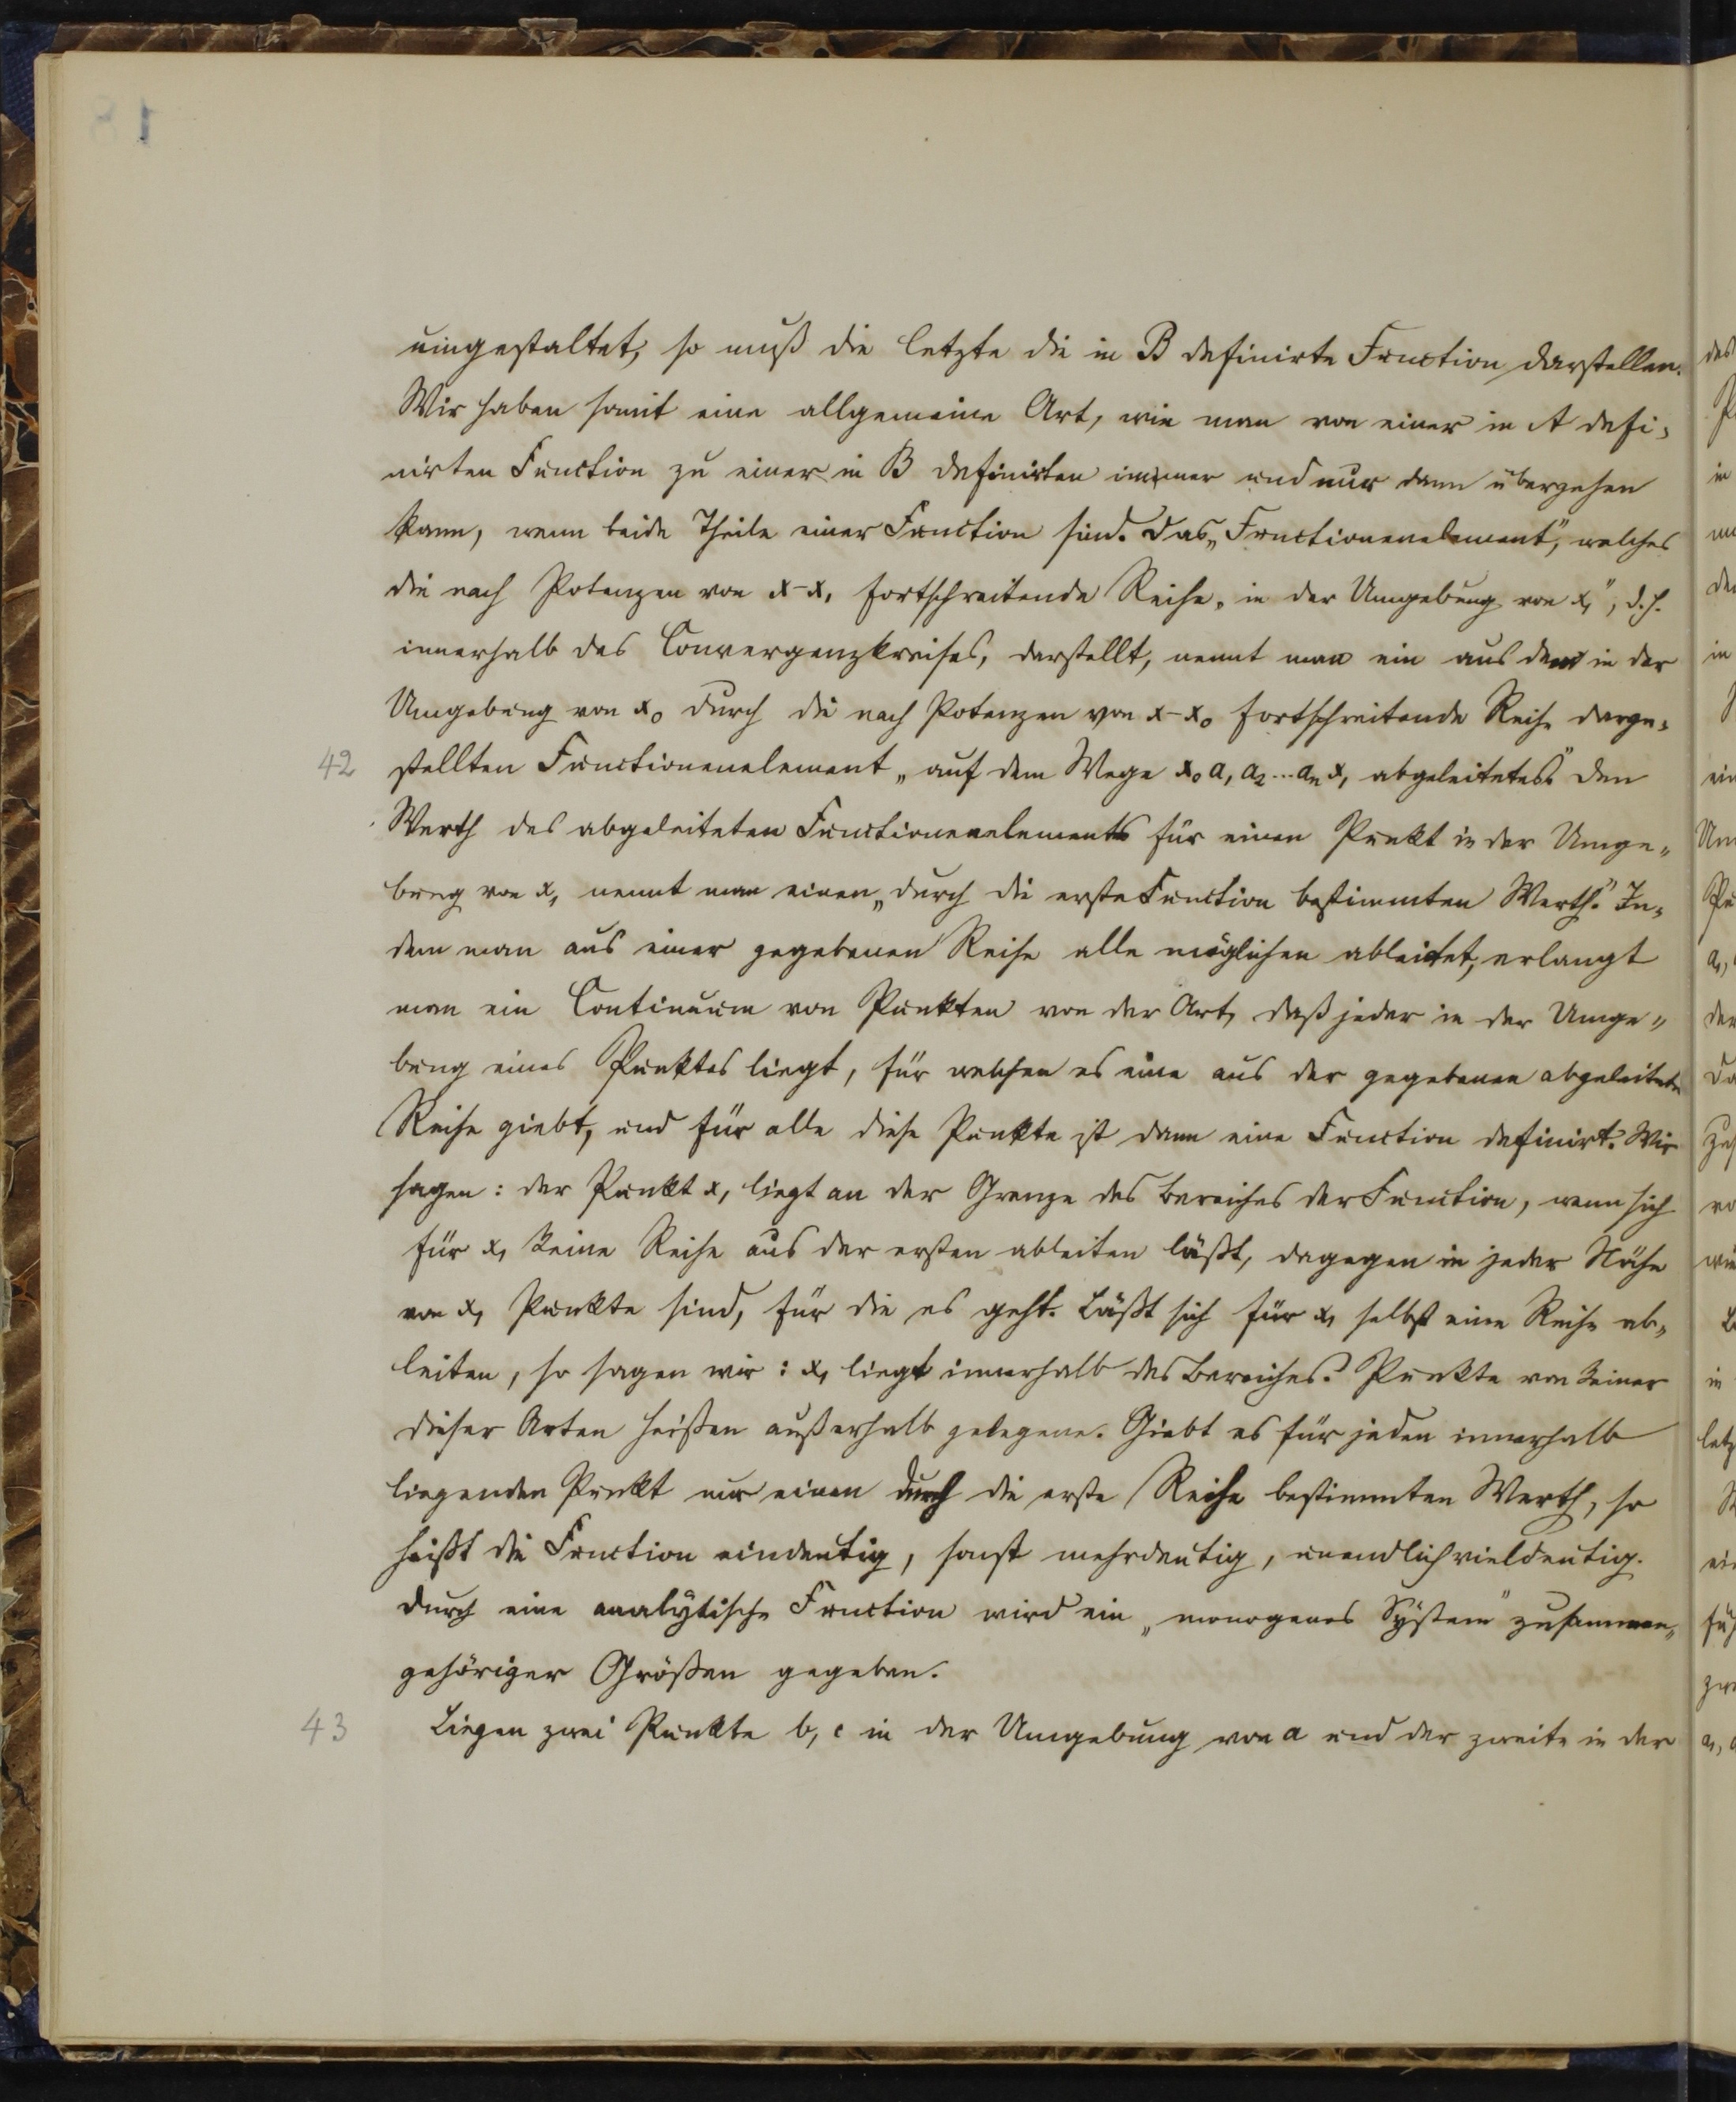 umgestaltet, so muß die letzte die in B definirte Function darstellen.
Wir haben somit eine allgemeine Art, wie man von einer in A defi-
nirten Function zu einer in B definirten immer und nur dann übergehen
kann, wenn beide Theile einer Function sind. Das „Functionenelement“, welches
die nach Potenzen von x-x₁ fortschreitende Reihe „in der Umgebung von x₁“, d.h.
innerhalb des Convergenzkreises, darstellt, nennt man ein aus dem in der
Umgebung von x₀ durch die nach Potenzen von x-x₀ fortschreitende Reihe darge-
42 stellten Functionenelement „auf dem Wege x₀ a₁ a₂...aₙ x₁ abgeleitetes“ Den
Werth des abgeleiteten Functionenelements für einen Punkt in der Umge-
bung von x₁ nennt man einen „durch die erste Function bestimmten Werth.“ In-
dem man aus einer gegebenen Reihe alle möglichen ableitet, erlangt
man ein Continuum von Punkten von der Art, daß jeder in der Umge-
bung eines Punktes liegt, für welchen es eine aus der gegebenen abgeleitete
Reihe giebt, und für alle diese Punkte ist dann eine Function definirt. Wir
sagen: der Punkt x₁ liegt an der Grenze des Bereiches der Function, wenn sich
für x₁ keine Reihe aus der ersten ableiten läßt, dagegen in jeder Nähe
von x₁ Punkte sind, für die es geht. Läßt sich für x₁ selbst eine Reihe ab-
leiten, so sagen wir: x₁ liegt innerhalb des Bereiches. Punkte von keiner
dieser Arten heißen außerhalb gelegene. Giebt es für jeden innerhalb
liegenden Punkt nur einen durch die erste Reihe bestimmten Werth, so
heißt die Function eindeutig, sonst mehrdeutig, unendlich vieldeutig.
Durch eine analytische Function wird ein „monogenes System“ zusammen-
gehöriger Größen gegeben.
43 Liegen zwei Punkte b, c in der Umgebung von a und der zweite in der